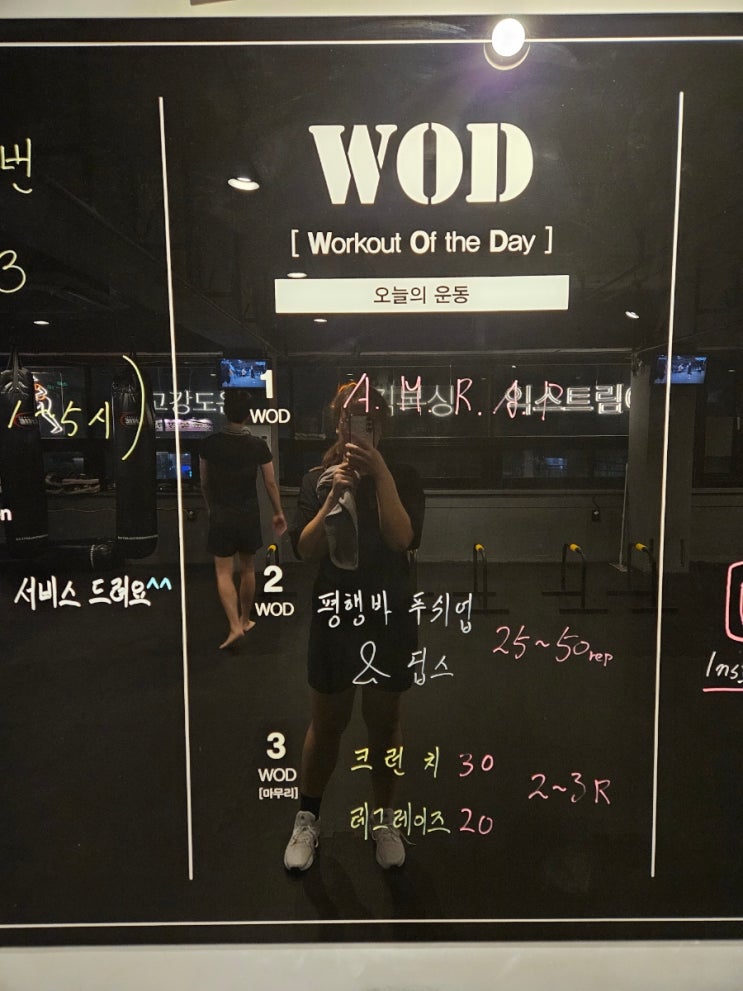 번
3
WOD
[ Workout Of the Day ]
오늘의 운동
1
WOD
A. M. R. A. P
5시)
고강도
익스트림
n
서비스 드려요^^
2
WOD
평행바 푸쉬업
& 딥스
25~50 rep
3
WOD
[마무리]
크런치 30
레그레이즈 20
2~3 R
Ins